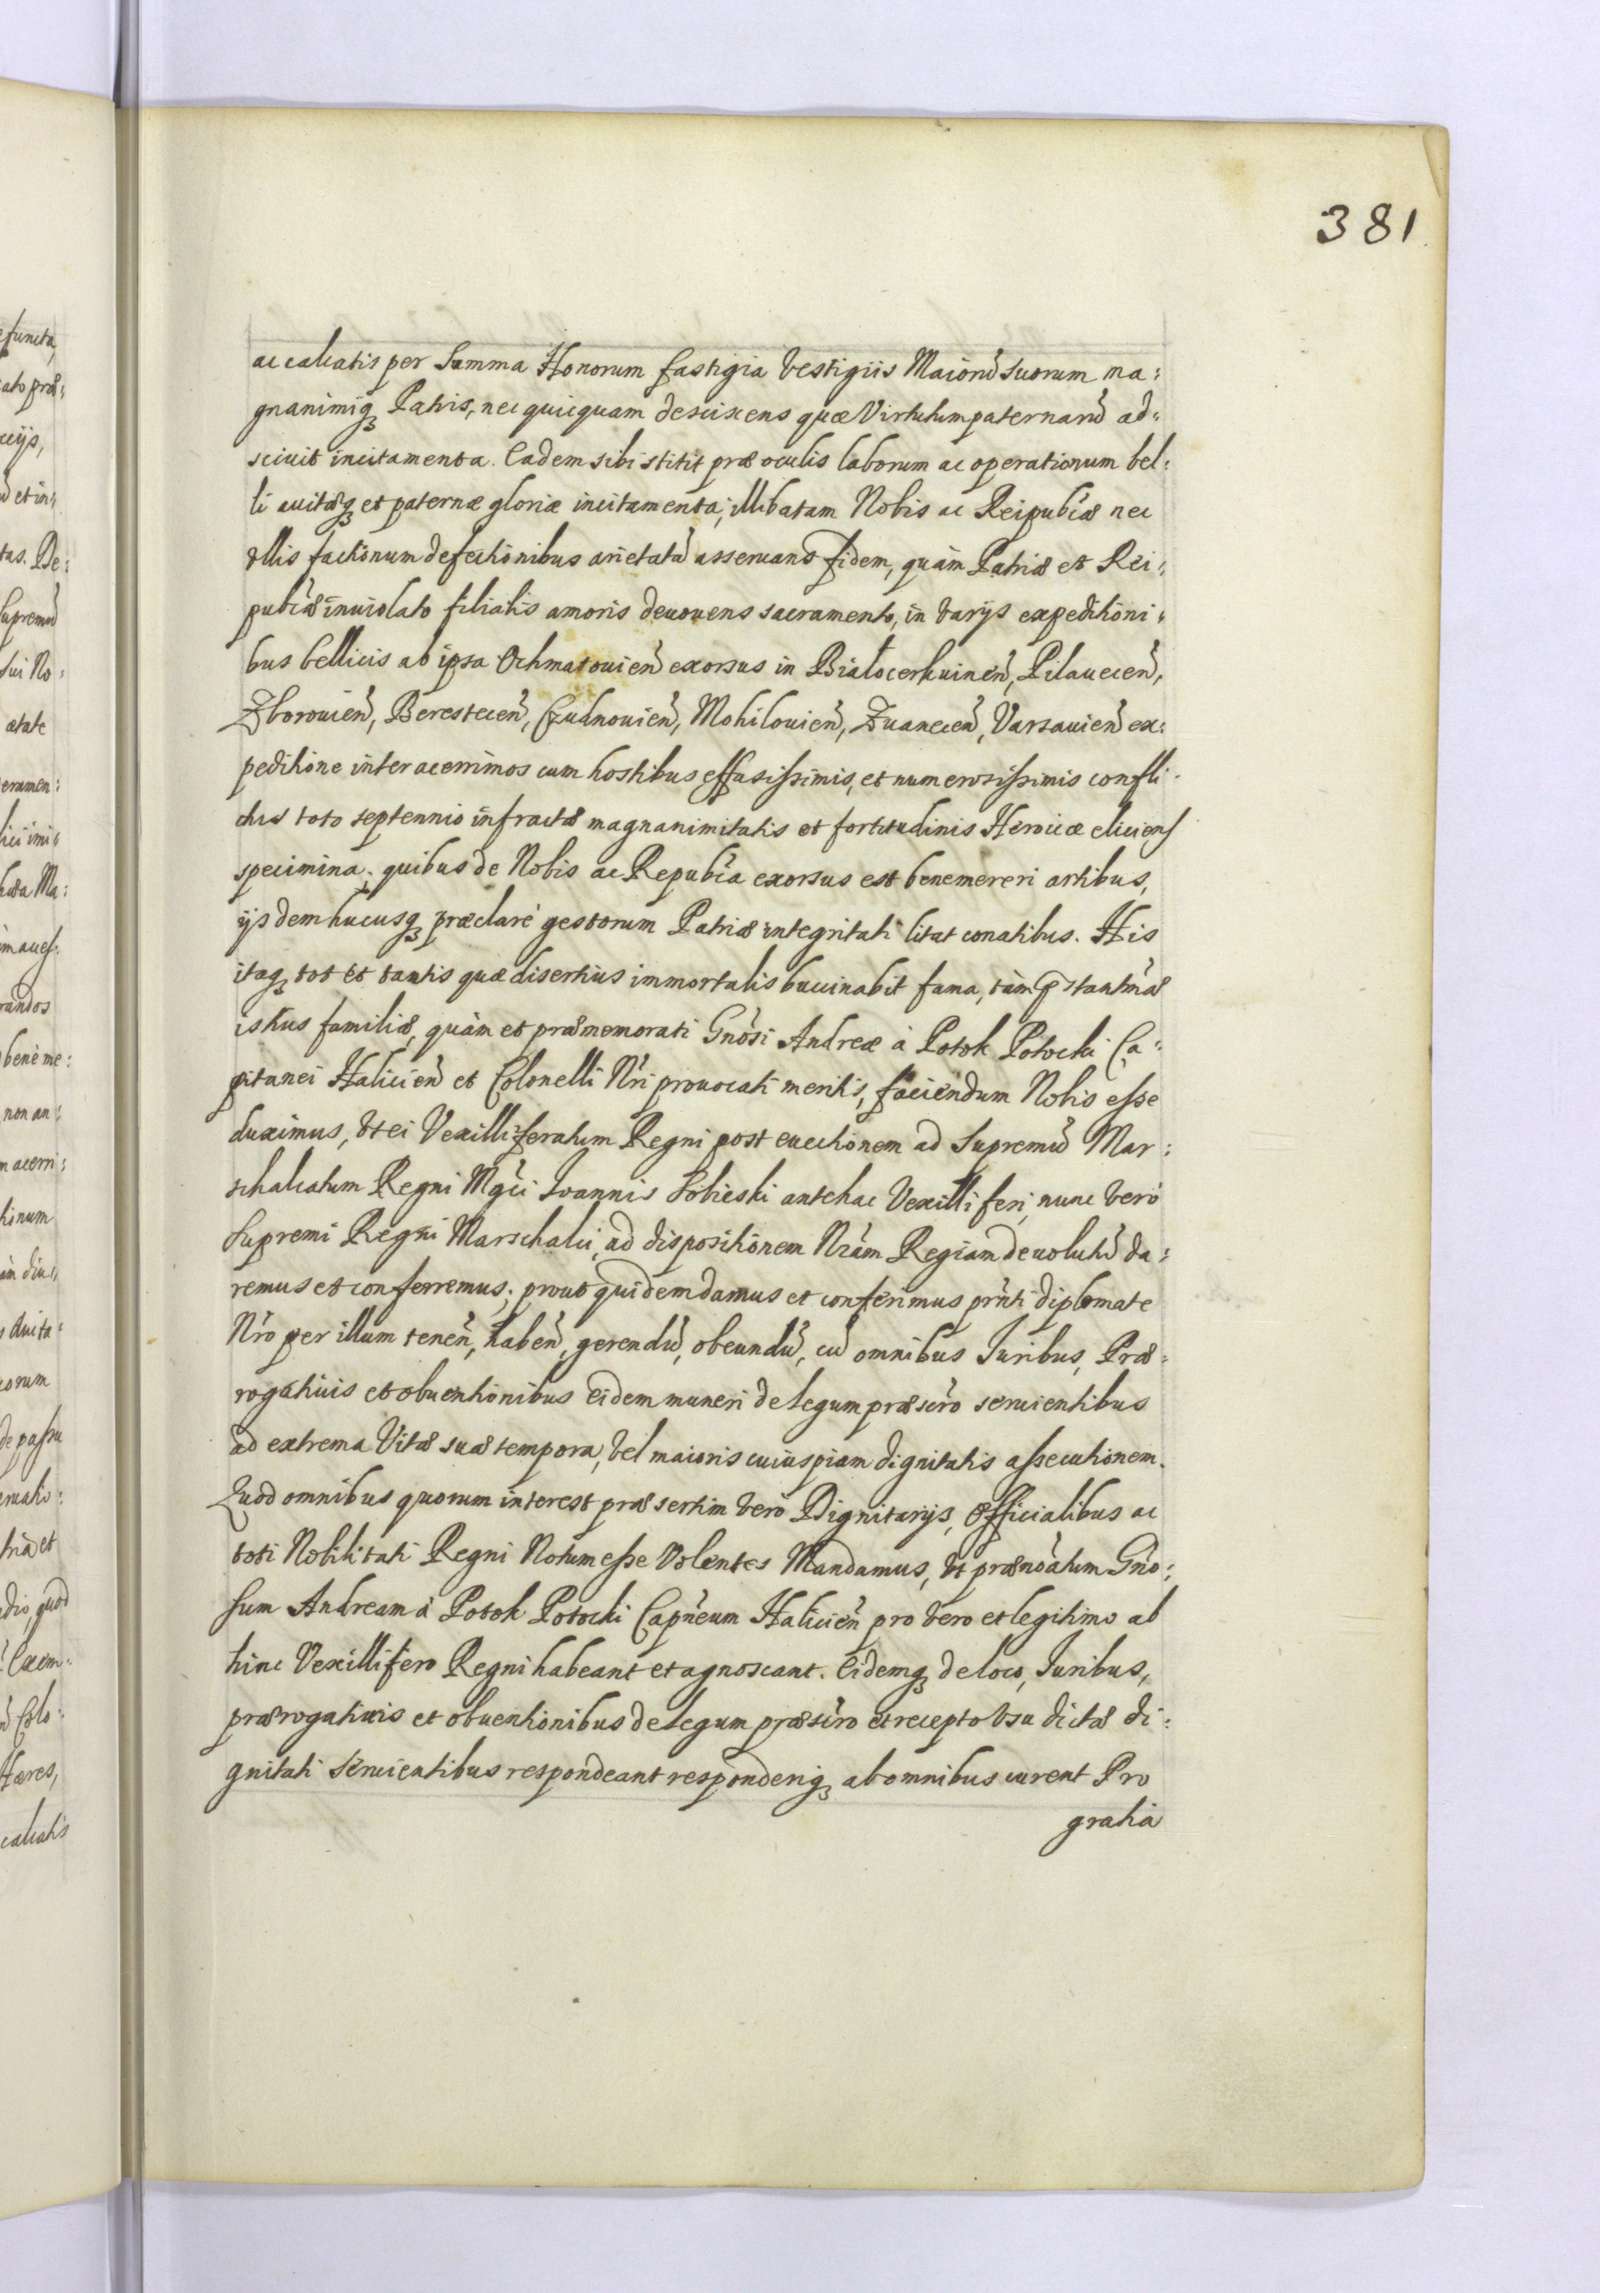 381
ac calcatis per Summa Honorum fastigia Vestigiis Maiorũ Suorum ma:
gnanimiq₃ Patris, nec quicquam desciscens quæ Virtutum paternarũ ad:
sciuit incitamenta. Eadem sibi stitit præ oculis laborum ac operationum bel:
li auitæq₃ et paternæ gloriæ incitamenta, illibatam Nobis ac Reipubcæ nec
Vllis factionum defectionibus arietatã asseruans fidem, quàm Patriæ et Rei:
pubcæ inuiolato filialis amoris deuouens sacramento, in Varijs expeditioni:
bus bellicis ab ipsa Ochmatouien exorsus in Białocerkuinen, Pilauecen,
Zborouien, Berestecen, Czudnouien, Mohilouien, Zuanecen, Varsauien ex:
peditione inter acerrimos cum hostibus effusissimis, et numerosissimis confli:
ctus toto septennio infractæ magnanimitatis et fortitudinis Heroicæ eliciens
specimina, quibus de Nobis ac Repubca exorsus est benemereri artibus,
ijsdem hucusq₃ præclarè gestorum Patriæ integritati litat conatibus. His
itaq₃ tot et tantis quæ disertius immortalis buccinabit fama, tàm
istius familiæ, quàm et præmemorati Gnosi Andreæ à Potok Potocki Ca:
pitanei Halicien et Colonelli Nri prouocati meritis, faciendum Nobis esse
duximus, Vt ei Vexilliferatum Regni post euectionem ad Supremũ Mar:
schalcatum Regni Mgci Ioannis Sobieski antehac Vexilliferi, nunc Verò
Supremi Regni Marschalci, ad dispositionem Nram Regiam deuolutũ da:
remus et conferremus; prout quidem damus et conferimus prnti diplomate
Nro per illum tenen, haben, gerendũ, obeundũ, cũ omnibus Iuribus, Præ:
rogatiuis et obuentionibus eidem muneri de legum præscro seruientibus
ad extrema Vitæ suæ tempora, Vel maioris cuiuspiam dignitatis assecutionem.
Quod omnibus quorum interest præsertim Verò Dignitarijs, Officialibus ac
toti Nobilitati Regni Notum esse Volentes Mandamus, Vt prænoatum Gno:
sum Andream à Potok Potocki Capneum Halicien pro Vero et legitimo ab
hinc Vexillifero Regni habeant et agnoscant. Eidemq₃ de loco, Iuribus,
prærogatiuis et obuentionibus de legum præscro et recepto Vsu dictæ di:
gnitati seruientibus respondeant responderiq₃ ab omnibus curent Pro
gratia